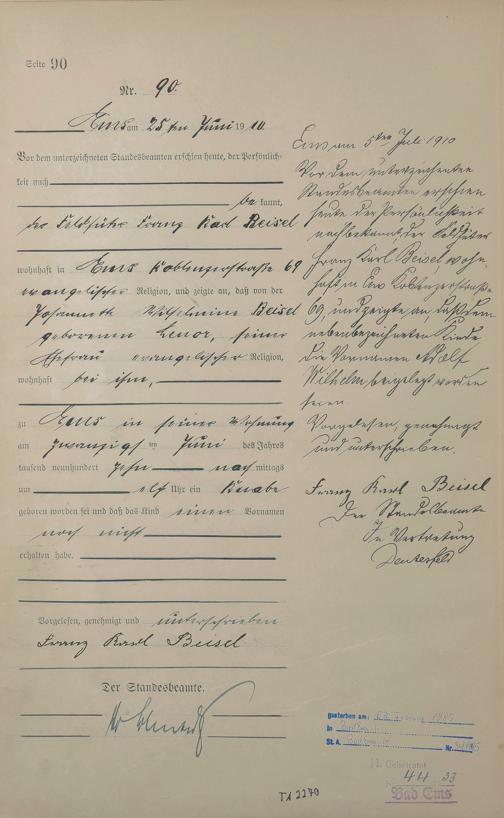 Seite 90
Nr. 90.
Ems am 25ten Juni 1910
Vor dem unterzeichneten Standesbeamten erschien heute, der Persönlich-
keit nach
be kannt,
der Feldhüter Franz Karl Beisel
wohnhaft in Ems Koblenzerstraße 69
evangelischer Religion, und zeigte an, daß von der
Wilhelmine Beisel
geborenen seiner
Ehefrau evangelischer Religion,
wohnhaft bei ihm,
zu Ems in seiner Wohnung
am zwanzigsten Juni des Jahres
tausend neunhundert zehn nach mittags
um elf Uhr ein Knabe
geboren worden sei und daß das Kind einen Vornamen
noch nicht
erhalten habe.
Vorgelesen, genehmigt und unterschrieben
Franz Karl Beisel
Der Standesbeamte.
Ems am 5ten Juli 1910
Vor dem unterzeichneten
Standesbeamten erschien
heute der Persönlichkeit
nach bekannt, der Feldhüter
Franz Karl Beisel, wohn-
haft in Ems Koblenzerstraße
69, und zeigte an, daß dem
nebenbezeichneten Kinde
die Vornamen Adolf
Wilhelm beigelegt worden
seien
Vorgelesen, genehmigt
und unterschrieben.
Franz Karl Beisel
Der Standesbeamte
In Vertretung
gestorben am: 1985
in
St. A. Nr.
44 33
Bad Ems